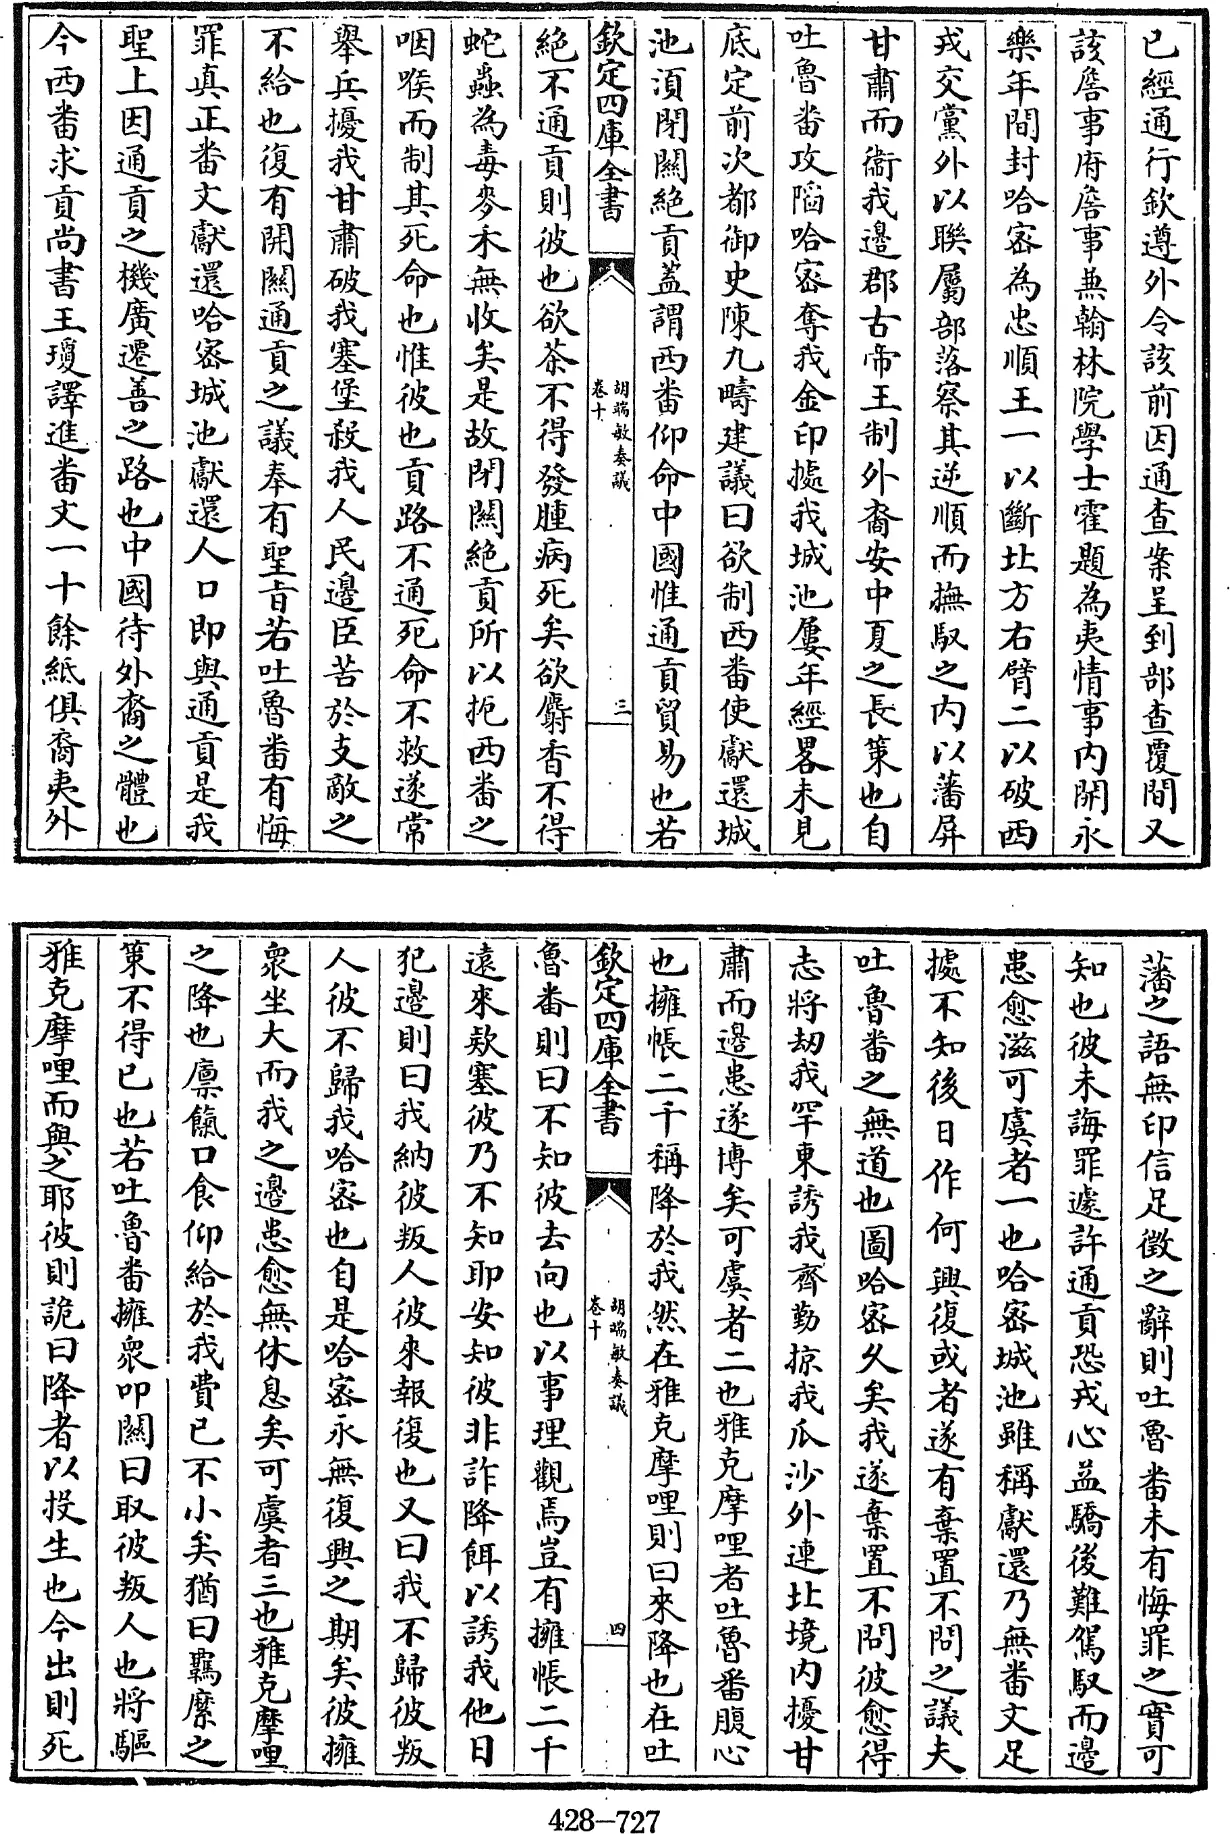 已經通行欽遵外今該前因通查案呈到部查覆間又
該詹事府詹事兼翰林院學士霍題為夷情事内開永
樂年間封哈密為忠順王一以斷北方右臂二以破西
戎交黨外以聯屬部落察其逆順而撫馭之内以藩屏
甘肅而衞我邊郡古帝王制外裔安中夏之長策也自
吐魯番攻陷哈密奪我金印據我城池屢年經畧未見
底定前次都御史陳九疇建議曰欲制西番使獻還城
池須閉關絶貢蓋謂西番仰命中國惟通貢貿易也若
欽定四庫全書
胡端敏奏議
卷十
三
絶不通貢則彼也欲茶不得發腫病死矣欲麝香不得
蛇蟲為毒麥禾無收矣是故閉關絶貢所以扼西番之
咽喉而制其死命也惟彼也貢路不通死命不救遂常
舉兵擾我甘肅破我塞堡殺我人民邊臣苦於支敵之
不給也復有開關通貢之議奉有聖旨若吐魯番有悔
罪真正番文獻還哈密城池獻還人口即與通貢是我
聖上因通貢之機廣遷善之路也中國待外裔之體也
今西番求貢尚書王瓊譯進番文一十餘紙俱裔夷外
藩之語無印信足徵之辭則吐魯番未有悔罪之實可
知也彼未誨罪遽許通貢恐戎心益驕後難駕馭而邊
患愈滋可虞者一也哈密城池雖稱獻還乃無番文足
據不知後日作何興復或者遂有棄置不問之議夫
吐魯番之無道也圖哈密久矣我遂棄置不問彼愈得
志將刼我罕東誘我齊勤掠我瓜沙外連北境内擾甘
肅而邊患遂博矣可虞者二也雅克摩哩者吐魯番腹心
也擁帳二千稱降於我然在雅克摩哩則曰來降也在吐
欽定四庫全書
胡端敏奏議
卷十
四
魯番則曰不知彼去向也以事理觀焉豈有擁帳二千
遠來款塞彼乃不知耶安知彼非詐降餌以誘我他日
犯邊則曰我納彼叛人彼來報復也又曰我不歸彼叛
人彼不歸我哈密也自是哈密永無復興之期矣彼擁
衆坐大而我之邊患愈無休息矣可虞者三也雅克摩哩
之降也廪餼口食仰給於我費已不小矣猶曰羈縻之
策不得已也若吐魯番擁衆叩關曰取彼叛人也將驅
雅克摩哩而與之耶彼則詭曰降者以投生也今出則死
428-727